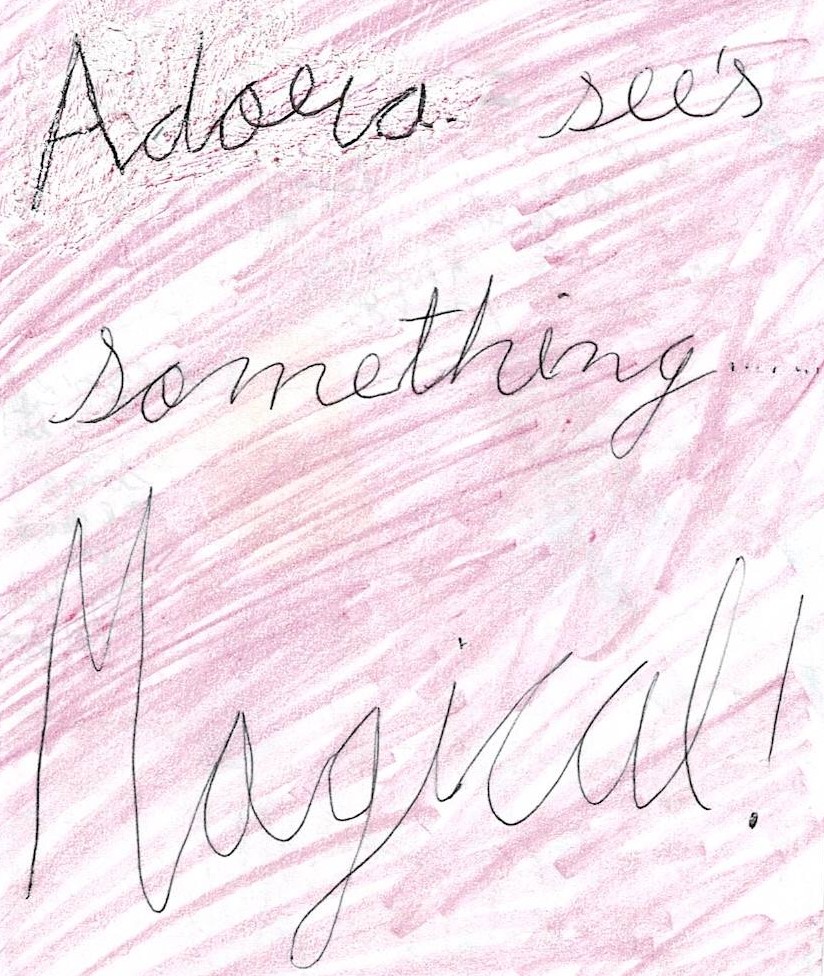 Adora see's
something......
Magical!